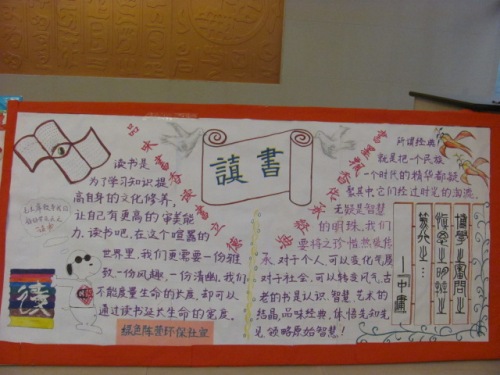 品味書香 讀書立德
讀書
书墨飘香 传承经典
读书是
为了学习知识提
高自身的文化修养，
让自己有更高的审美能
力。读书吧，在这个喧嚣的
世界里，我们更需要一份雅
致，一份风趣，一份清幽，我们
不能度量生命的长度，却可以
通过读书延长生命的宽度。
绿色阵营环保社宣
所谓经典，
就是把一个民族
一个时代的精华都凝
聚其中，它们经过时光的淘漉，
无疑是智慧
的明珠，我们
要将之珍惜热爱传
承。对于个人，可以变化气质
对于社会，可以转变风气，古
老的书是认识、智慧、艺术的
结晶，品味经典，体悟先知先
见，领略原始智慧！
博學之 審問之
慎思之 明辨之
篤行之
—中庸
读